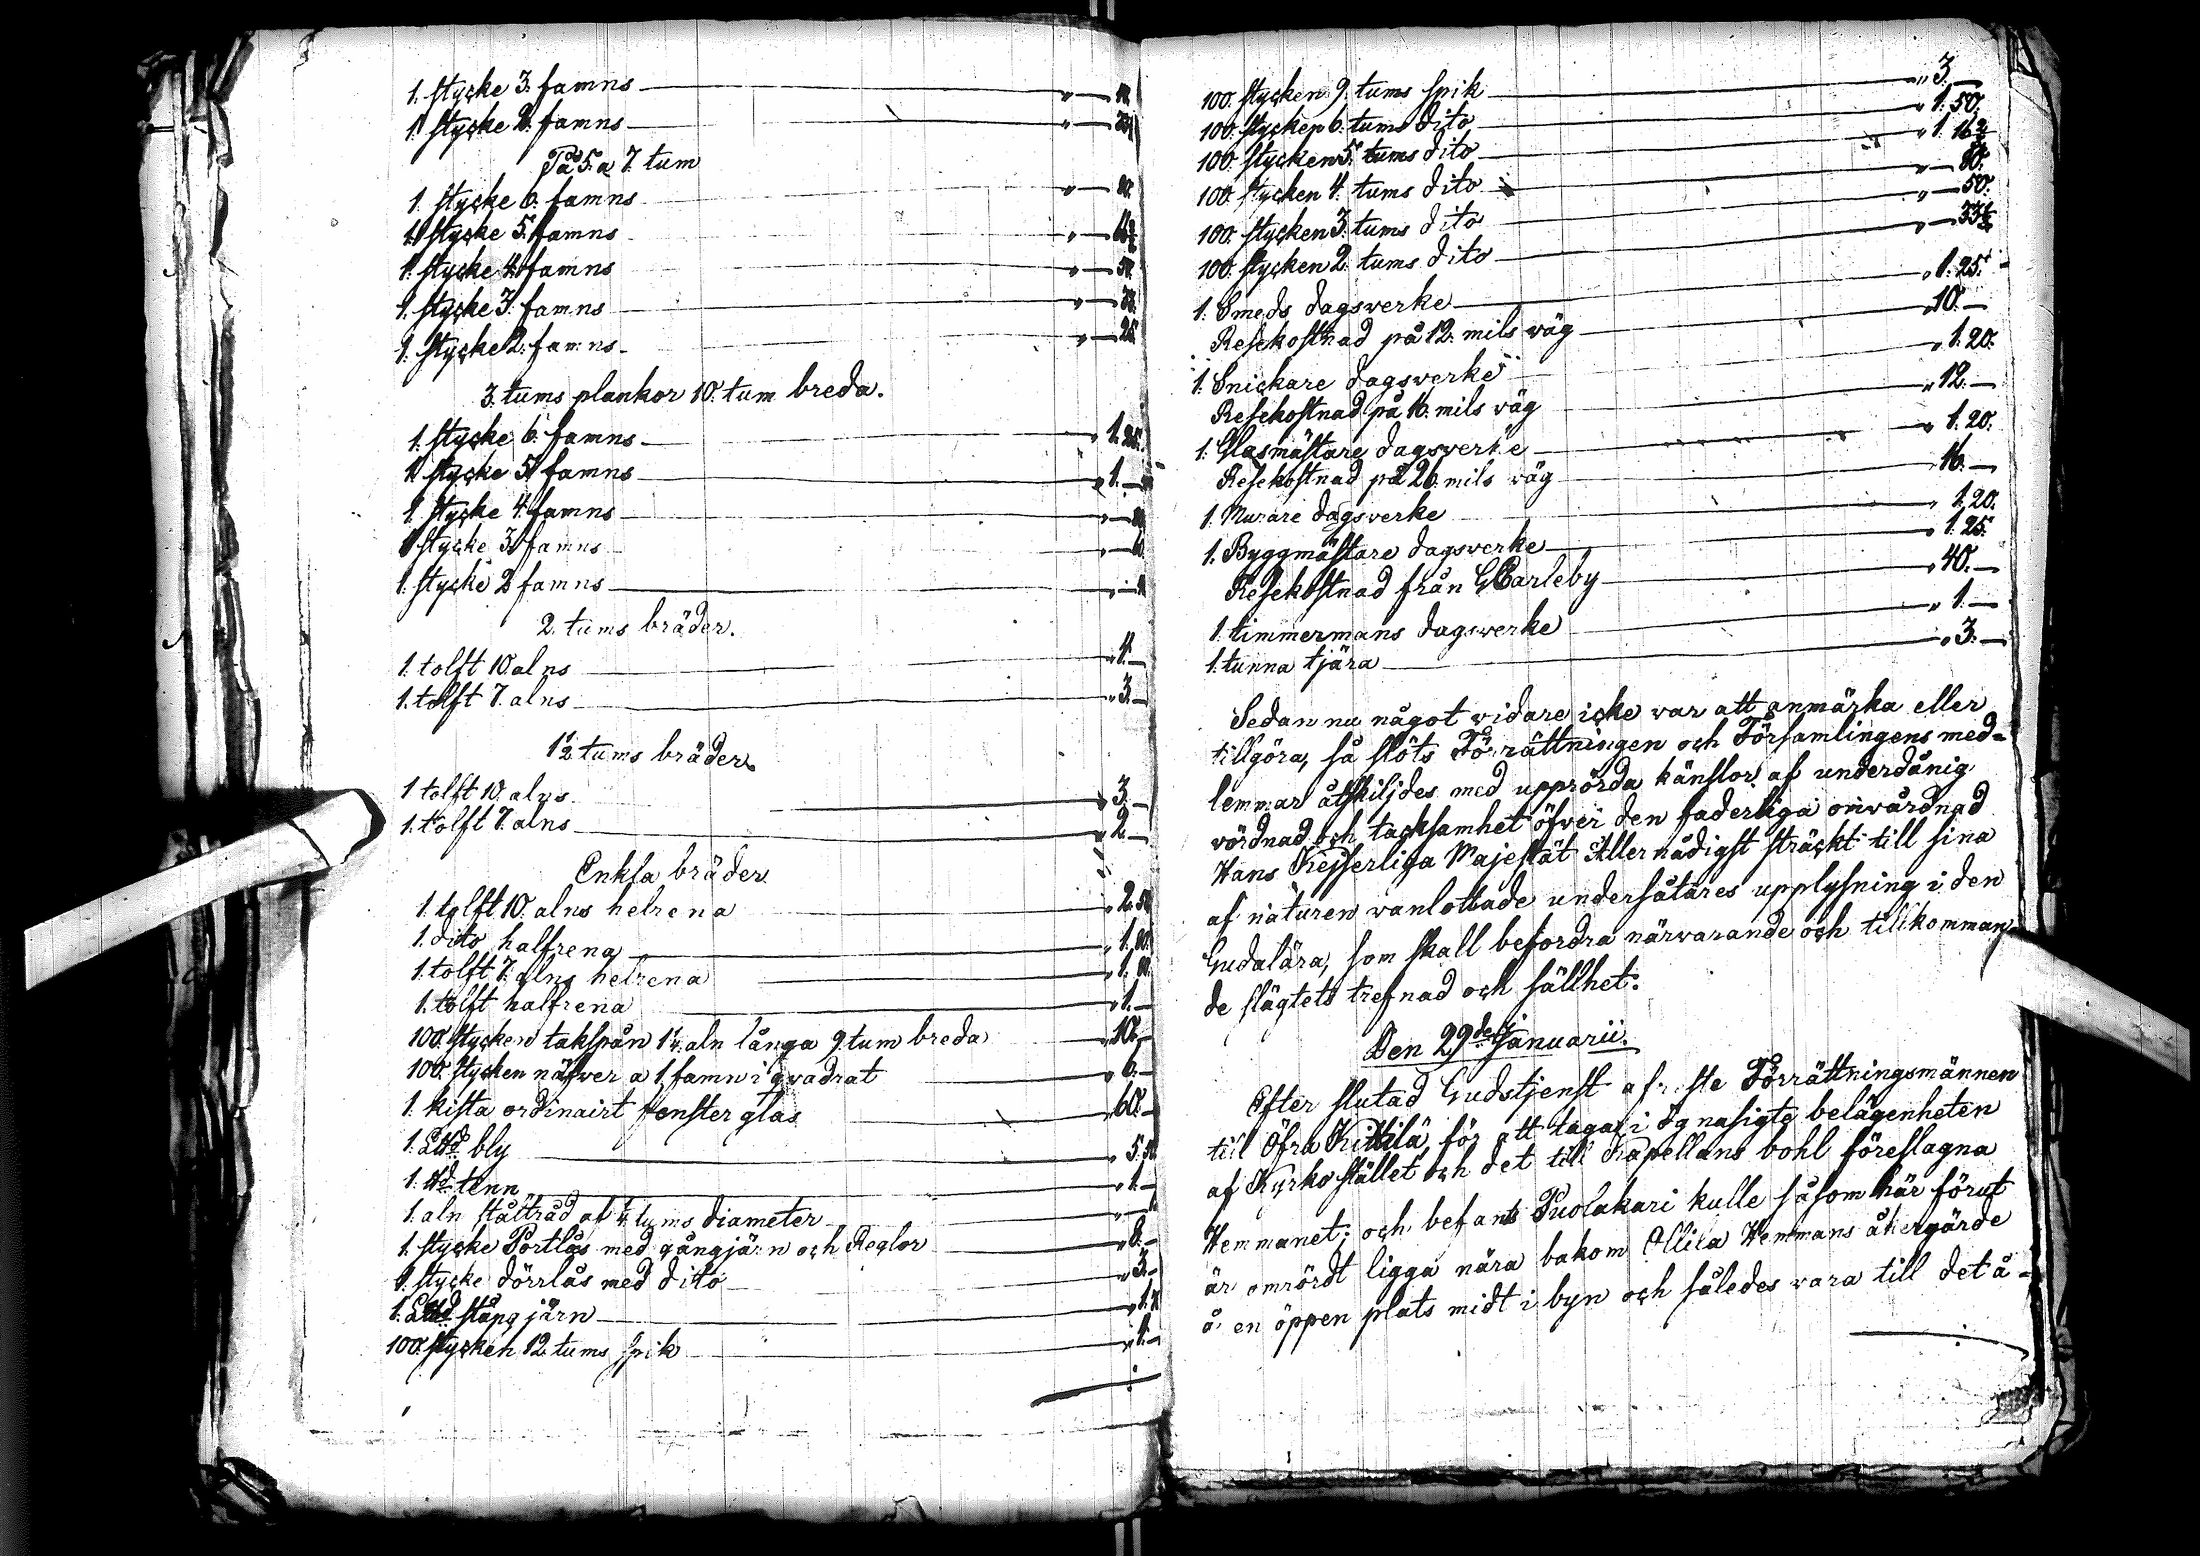 1. stycke 3. famns
1. stycke 2. famns
På 5. a 7. tum
1. stycke 6. famns
1. stycke 5. famns
1. stycke 4. famns „ — 50.
1. stycke 3. famns
1. stycke 2. famns „ — 25.
3. tums plankor 10. tum breda.
1. stycke 6. famns „ 1. 25.
1. stycke 5. famns „ 1. —
1. stycke 4. famns
1. stycke 3. famns
1. stycke 2 famns
2. tums bräder.
1. tolft 10. alns „ 4. —
1. tolft 7. alns „ 3. —
1½ tums bräder.
1 tolft 10. alns „ 3. —
1. tolft 7. alns „ 2. —
Enkla bräder
1. tolft 10. alns helrena „ 2. 50.
1. dito halfrena
1. tolft 7. alns helrena
1. tolft halfrena „ 1. —
100. stycken takspån 1¼. aln långa 9. tum breda „ 10. —
100. stycken näfver a 1. famn i qvadrat „ 6. —
1. kista ordinairt fenster glas „ 60. —
1. L℔d bly
1. ℔d tenn „ 1. —
1. aln ståltråd af ¼ tums diameter
1. stycke Portlås med gångjärn och Reglor
1. stycke dörrlås med dito „ 3. —
1. L℔d stång järn
100. stycken 12. tums spik
100. stycken 9. tums spik „ 3. —
100. stycken 6. tums dito „ 1. 50.
100. stycken 5. tums dito „ 1. 16⅔
100. stycken 4. tums dito „ — 80.
100. stycken 3. tums dito „ — 50.
100. stycken 2. tums dito „ — 33⅓
1. Smeds dagsverke „ 1. 25.
Resekostnad på 12. mils väg „ 10. —
1. Snickare dagsverke „ 1. 20.
Resekostnad på 16. mils väg „ 12. —
1. Glasmästare dagsverke „ 1. 20.
Resekostnad på 26. mils väg „ 16. —
1. Murare dagsverke „ 1. 20.
1. Byggmästare dagsverke „ 1. 25.
Resekostnad från GCarleby „ 40. —
1. timmermans dagsverke „ 1. —
1. tunna tjära „ 3. —
Sedan nu något vidare icke var att anmärka eller
tillgöra, så slöts Förrättningen och Församlingens med-
lemmar åtskiljdes med upprörda känslor af underdånig
vördnad och tacksamhet öfver den faderliga omvårdnad
Hans Kejserliga Majestät Allernådigst sträckt till sina
af naturen vanlottade undersåtares upplysning i den
Gudalära, som skall befordra närvarande och tillkomman-
de slägtets trefnad och sällhet.
Den 29de Januarii.
Efter slutad Gudstjenst afreste Förrättningsmännen
till Öfra Kittilä, för att taga i ögnasigte belägenheten
af Kyrko stället och det till Kapellans bohl föreslagna
Hemmanet; och befants Puolakari kulle såsom här förut
är omrördt ligga nära bakom Ollila Hemmans åkergärde
å en öppen plats midt i byn och således vara till det å-